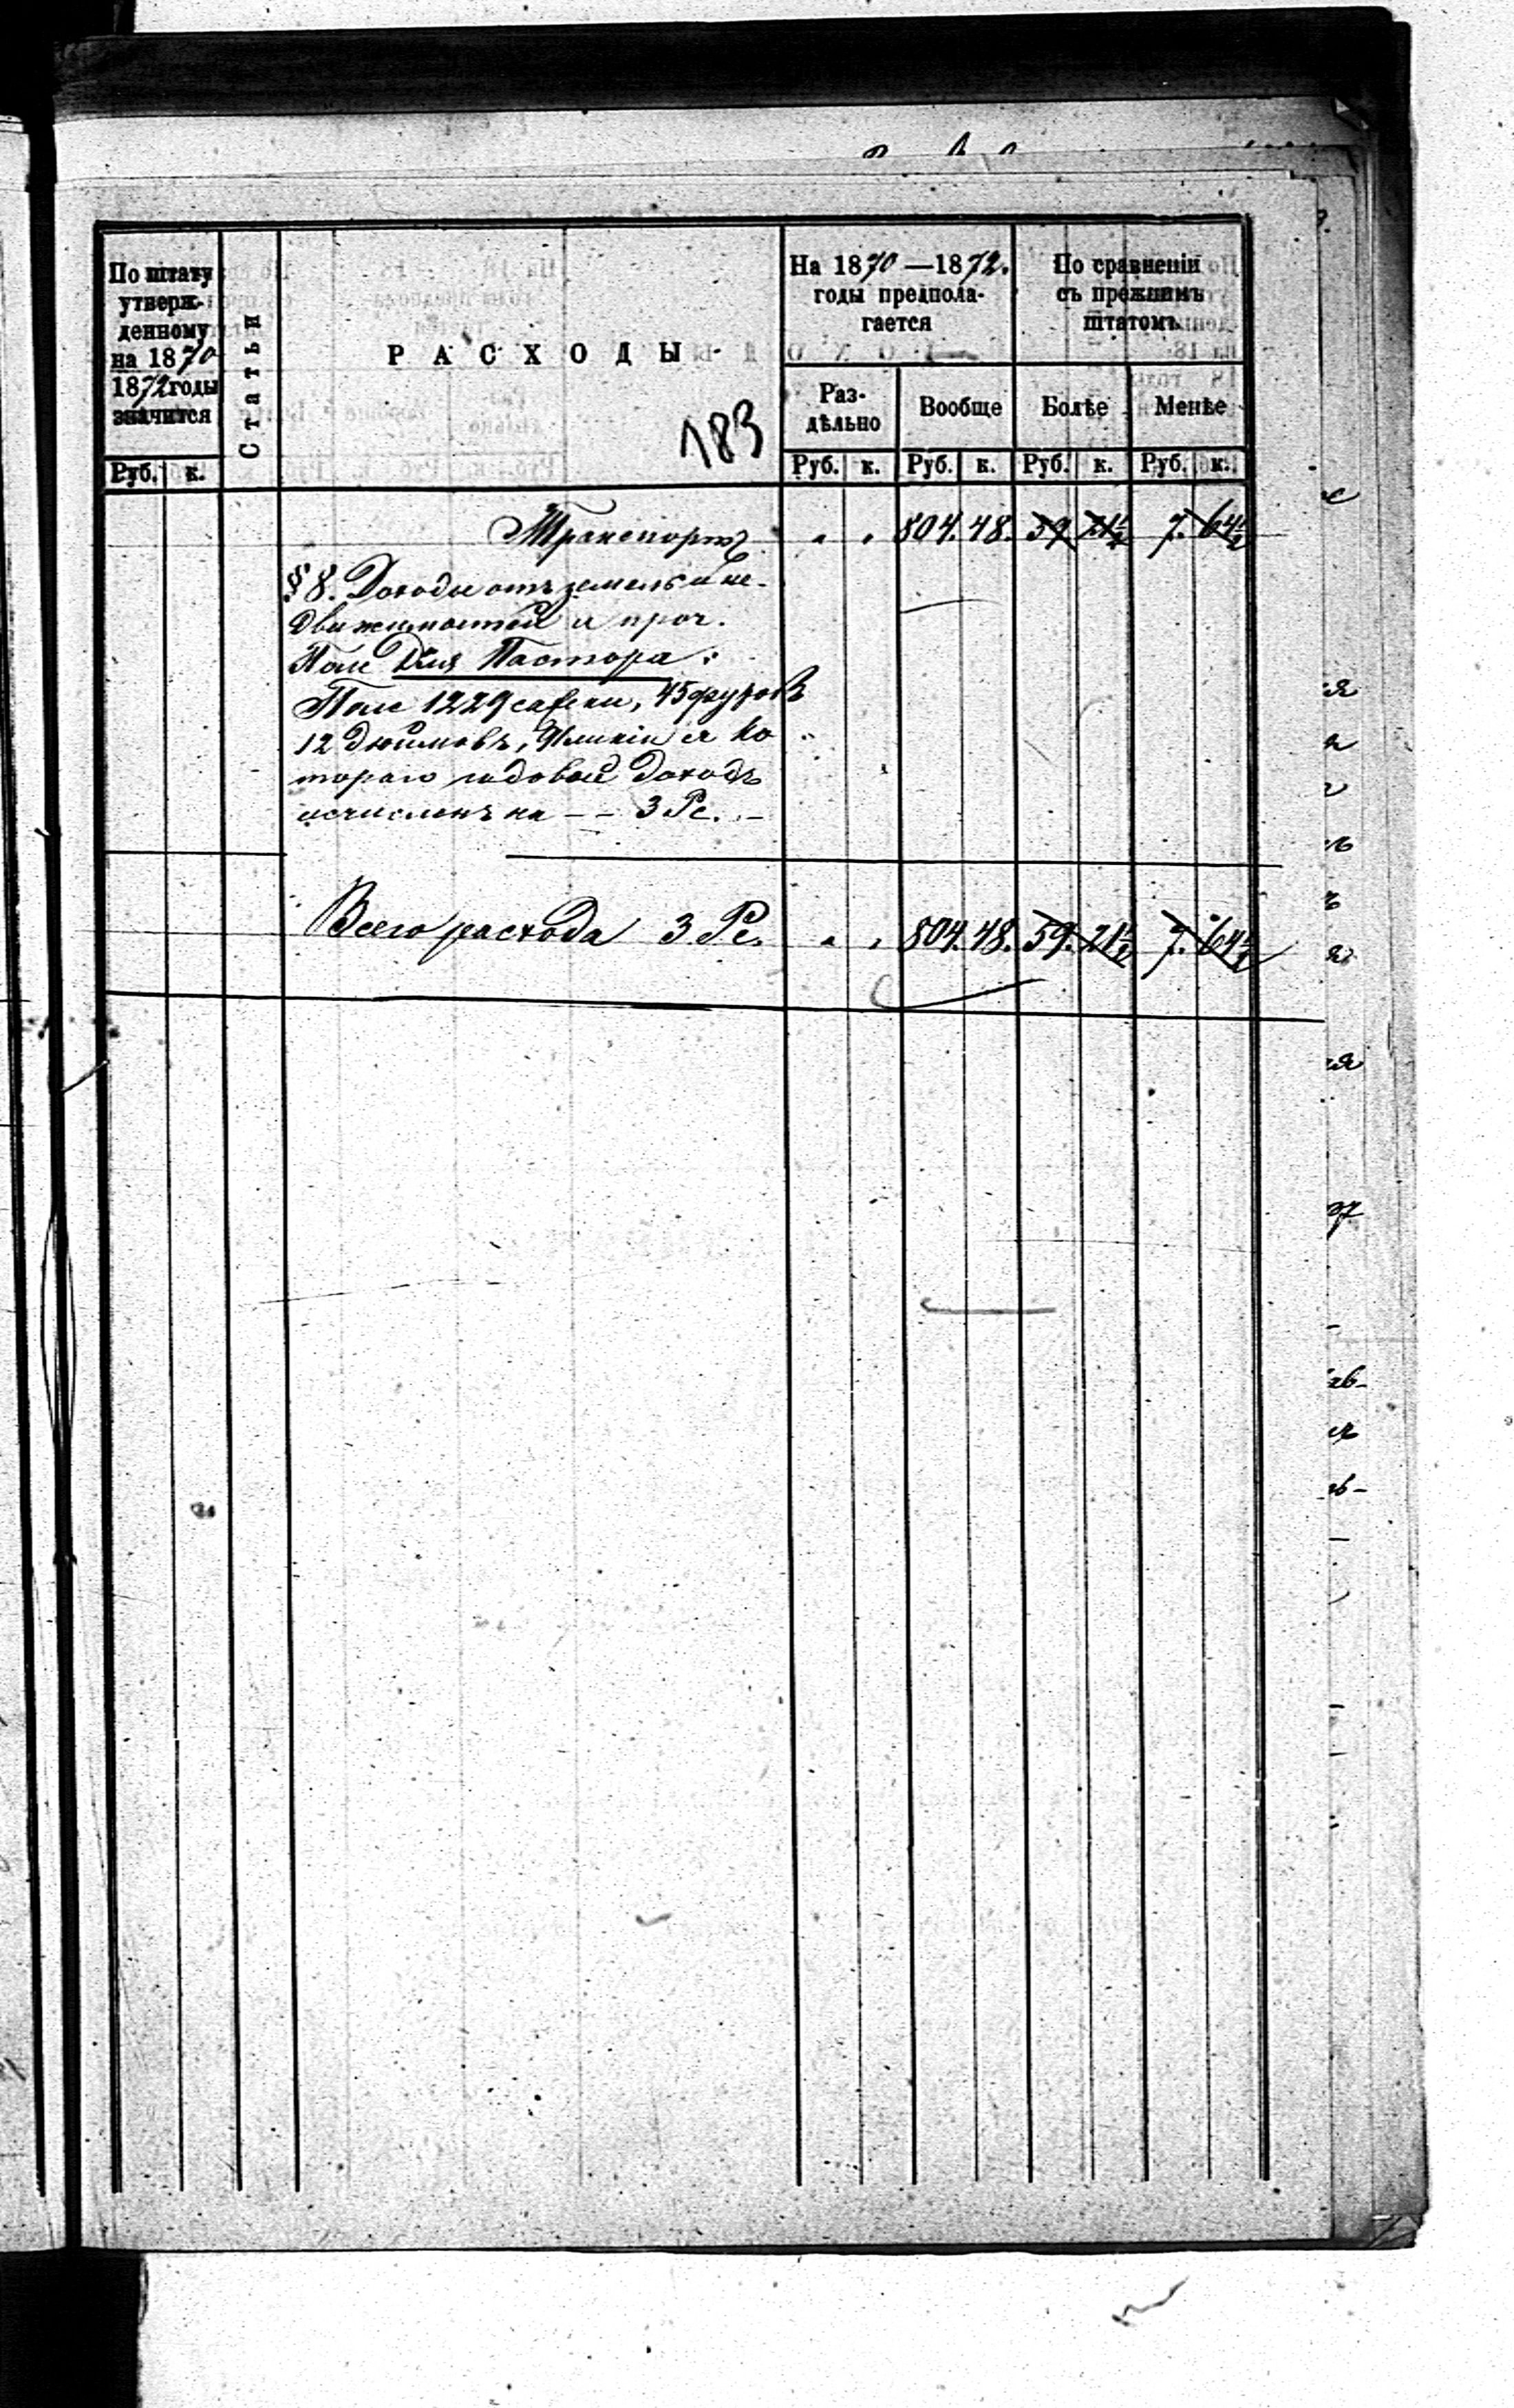 По штату
утверж-
денному
на 1870
1872 годы
значится
Руб. к.
Статьи
РАСХОДЫ
183
На 1870—1872.
годы предпола-
гается
Раз-
дѣльно
Вообще
Руб. к. Руб. к.
По сравненію
съ прежнимъ
штатомъ
Болѣе Менѣе
Руб. к. Руб. к.
Транспортъ " " 804. 48. 59 21½ 7. 64½
§ 8. Доходы отъ земель и не-
движимостей и проч.
Поле Для Пастора:
Поле 1229 сажени, 45 футовъ
12 дюймовъ, и ко
тораго годовой доходъ
исчисленъ на — — 3 Рс. —
Всего расхода 3 Рс. " " 804. 48. 59. 21½ 7. 64½